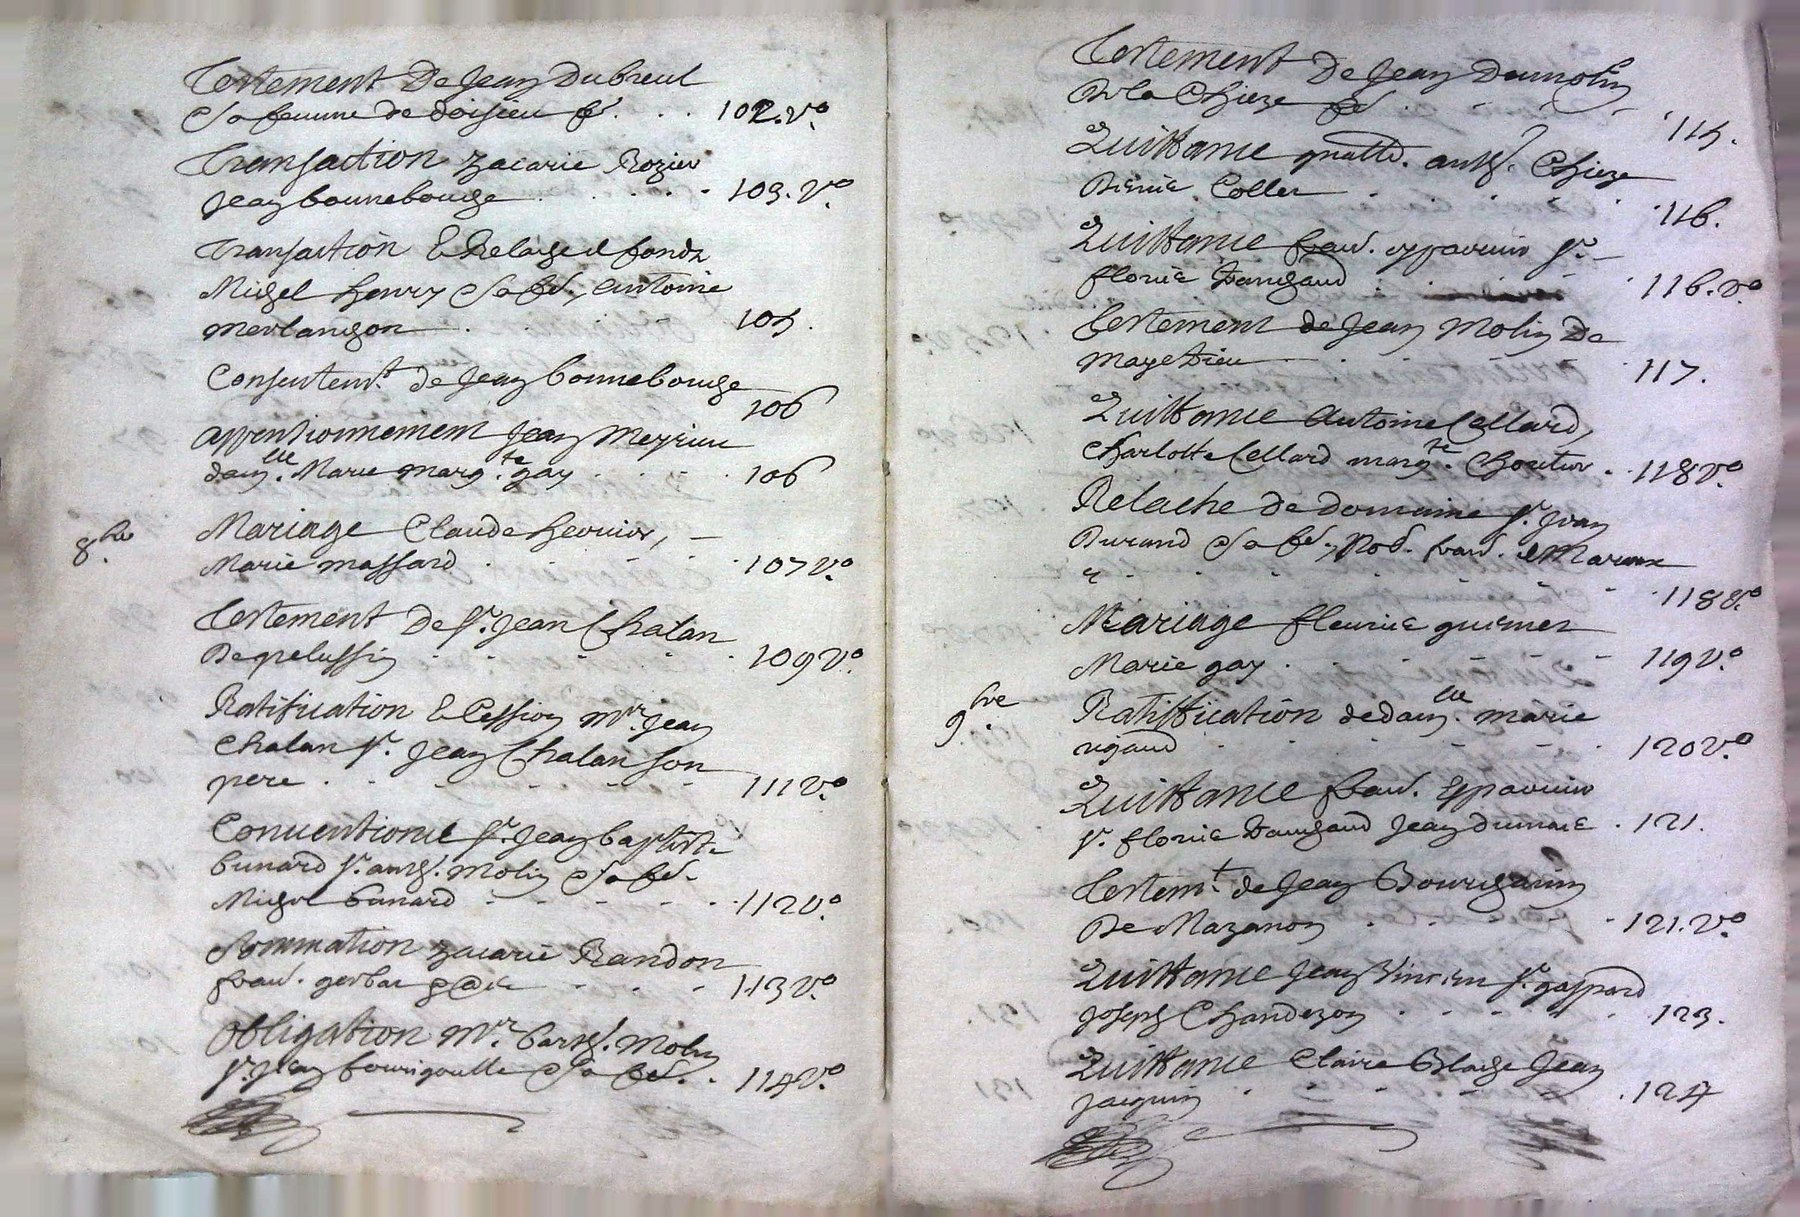 Testement De Jean Dubreul
Sa femme de doisieu &c. 102. v.o
Transaction zacarie Rozier
Jean bonnebouche 103. v.o
Transaction & Relache de fondz
Michel henry &c, antoine
merlançon 105.
Consentem.t de Jean bonnebouche
106
appentionnement Jean Meyrieu
dam.lle Marie marg.te gay 106
8.bre Mariage Claude heruier,
Marie massard 107 v.o
Testement De Sr. Jean Chalan
De pelussin 109 v.o
Ratification & Cession Mr. Jean
Chalan Sr. Jean Chalan son
pere 111 v.o
Conuentione Sr. Jean baptiste
bunard Sr. anth. molin
Michel bunard 112 v.o
Sommation zacarie Randon
franc. gerbat 113 v.o
Obligation Mr. barth. Molin
Sr. Jean fourigoulle 114 v.o
Testement De Jean Dumolin
De la Chieze 115.
Quittance anth. Chieze
Pierre Coller 116.
Quittance franc. eyparuier Sr.
florie Dangaud 116. v.o
Testement de Jean Molin De
Maye Dieu 117.
Quittance Antoine Cellard,
Charlotte Cellard marg.te Choutier 118 v.o
Relache de domaine Sr. Jean
Durand franc.
118 v.o
Mariage fleurie guimet
Marie gay 119 v.o
9.bre Ratiffication de dam.lle marie
rigaud 120 v.o
Quittance franc. Eyparuier
Sr. florie Dangaud Jean dumare 121.
Testem.t de Jean Bourgarin
De Mazanon 121. v.o
Quittance Jean Vincent Sr. gaspard
Joseph Chandezon 123.
Quittance Claire Blache Jean
Jacquin 124